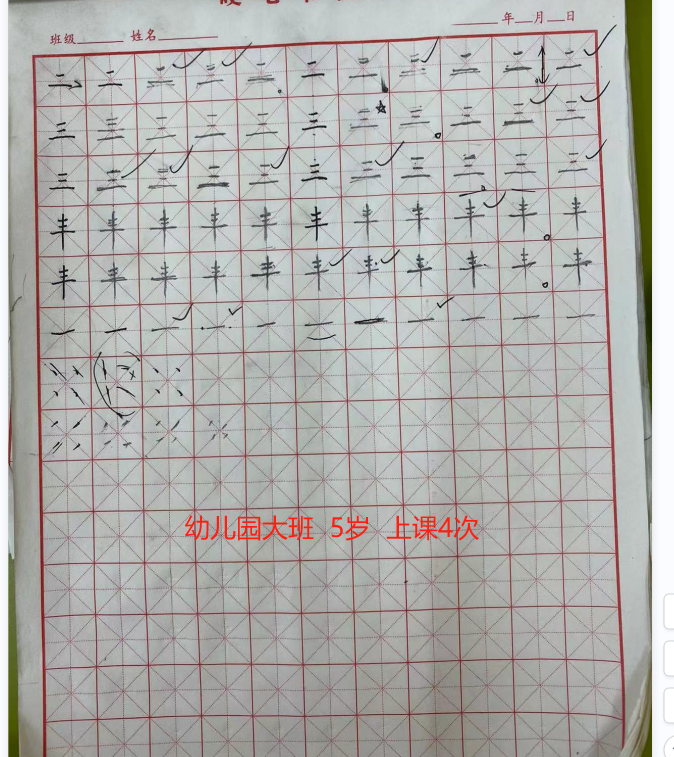 班级 姓名 年 月 日
二 二 二 二 二 二 二 二 二 二 二
三 三 三 三 三 三 三 三 三 三 三
三 三 三 三 三 三 三 三 三 三 三
丰 丰 丰 丰 丰 丰 丰 丰 丰 丰 丰
丰 丰 丰 丰 丰 丰 丰 丰 丰 丰 丰
一 一 一 一 一 一 一 一 一 一 一
幼儿园大班 5岁 上课4次